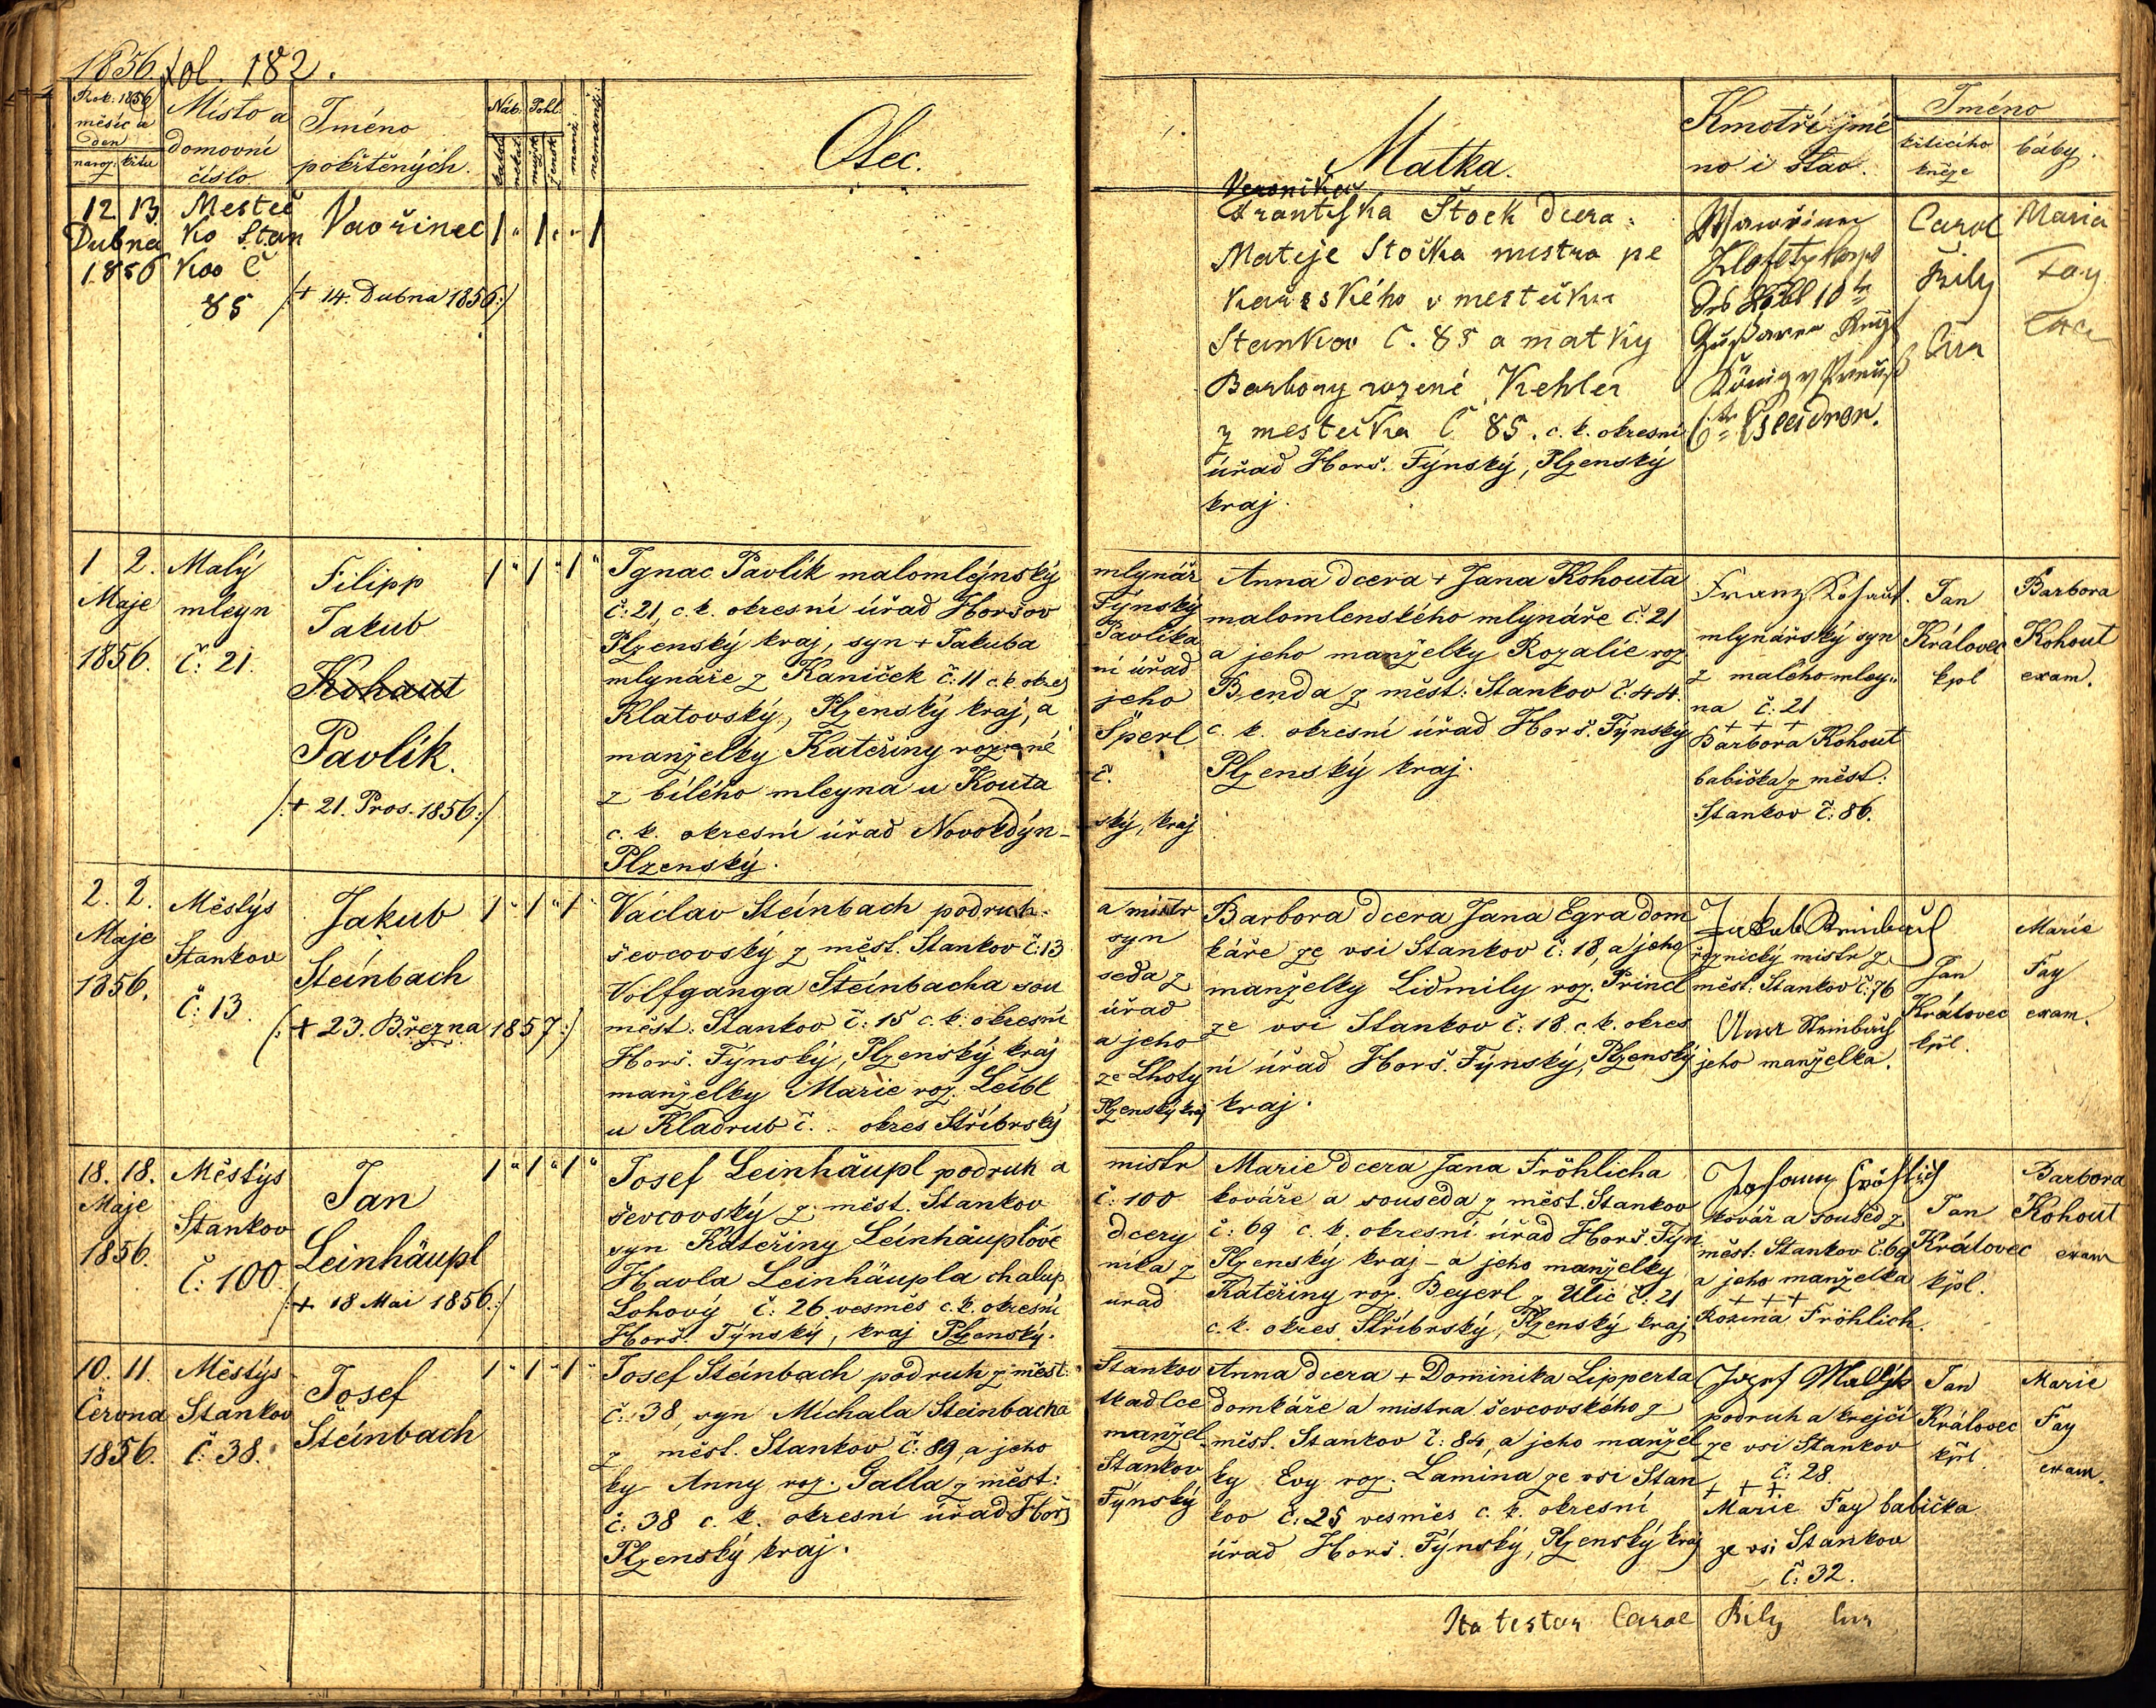 1856 fol. 182.
Rok: 1856
měsíc a
den
naroz: křtu
Místo a
domovní
číslo
Jméno
pokřtěných.
Náb. Pohl.
katol.
nekat.
mužsk.
žensk.
manž.
nemanž.
Otec.
Matka.
Kmotří jmé
no i stav.
Jméno
křtícího
kněze
báby.
12 13
Dubna
1856
Mesteč
ko Stan
kov C
85
Vavřinec
1 " 1 " " 1
/:+ 14. Dubna 1856:/
Veronika
Frantiska Stock dcera
Mateje Stočka mistra pe
kařského v mestečku
Stankov C. 85 a matky
Barbory rozené Kehler
z mestečka C 85. c. k. okresní
úřad Horš. Týnský, Plzenský
kraj.
König v Preuß
6te Escadron.
Carol
Bily
Cur
Maria
Fay
1 2.
Maje
1856.
Malý
mleyn
č: 21.
Filipp
Jakub
Kohaut
Pavlík.
/:+ 21. Pros. 1856:/
1 " 1 " 1 "
Ignac Pavlík malomlýnský mlynář
č: 21, c. k. okresní úřad Horšov Týnský
Plzenský kraj, syn + Jakuba Pavlíka
mlynáře z Kaniček č: 11 c. k. okres ní úřad
Klatovský, Plzenský kraj, a jeho
manželky Kateřiny rozené Šperl
z bílého mleyna u Kouta č.
c. k. okresní úřad Novokdýn- ský, kraj
Plzenský.
Anna dcera + Jana Kohouta
malomlenského mlynáře č: 21
a jeho manželky Rozalie roz.
Benda z měst: Stankov č: 44.
c. k. okresní úřad Horš. Týnský
Plzenský kraj.
Franz Kohaut.
mlynářský syn
z malého mley-
na č: 21
+ + +
Barbora Kohout
babička z měst:
Stankov č: 86.
Jan
Královec
kpl
Barbora
Kohout
exam.
2. 2.
Maje
1856.
Městýs
Stankov
č: 13.
Jakub
Steínbach
(:+ 23. Března 1857:)
1 " 1 " 1 "
Václav Steínbach podruh a mistr
ševcovský z měst. Stankov č: 13 syn
Volfganga Steínbacha sou seda z
měst: Stankov č: 15 c. k. okresní úřad
Horš. Týnský, Plzenský kraj a jeho
manželky Marie roz. Leíbl ze Lhoty
u Kladrub č. okres Stříbrský Plzenský kraj
Barbora dcera Jana Egra dom
káře ze vsi Stankov č: 18, a jeho
manželky Lidmily roz. Princl
ze vsi Stankov č: 18. c. k. okres
ní úřad Horš. Týnský, Plzenský
kraj.
Jakub Steinbach
řeznický mistr z
měst: Stankov č: 76
Anna Steinbach
jeho manželka.
Jan
Královec
kpl.
Marie
Fay
exam.
18. 18.
Maje
1856.
Městýs
Stankov
č: 100.
Jan
Leinhäupl
/:+ 18 Mai 1856:/
1 " 1 " 1 "
Josef Leinhäupl podruh a mistr
ševcovský z měst. Stankov č: 100
syn Kateřiny Leínhäuplové dcery
Havla Leinhäupla chalup níka z
Lohový č: 26 vesměs c. k. okresní úřad
Horš. Týnský, kraj Plzenský.
Marie dcera Jana Fröhlicha
kováře a souseda z měst. Stankov
č: 69 c. k. okresní úřad Horš. Týn
Plzenský kraj - a jeho manželky
Kateřiny roz. Beyerl z Ulic č: 21
c. k. okres Stříbrský, Plzenský kraj
Johann Fröhlich
kovář a soused z
měst: Stankov č: 69
a jeho manželka
+ + +
Rozina Fröhlich.
Jan
Královec
kpl.
Barbora
Kohout
exam
10. 11.
Června
1856.
Městýs
Stankov
č: 38.
Josef
Steínbach
1 " 1 " 1 "
Josef Steínbach podruh z měst: Stankov
č: 38, syn Michala Steinbacha tkadlce
z měst. Stankov č: 89, a jeho manžel
ky Anny roz. Galla z měst: Stankov
č: 38 c. k. okresní úřad Horš Týnský
Plzenský kraj.
Anna dcera + Dominika Lipperta
domkáře a mistra ševcovského z
měst. Stankov č: 84, a jeho manžel
ky Evy roz. Lamina ze vsi Stan
kov č: 25 vesměs c. k. okresní
úřad Horš. Týnský, Plzenský kraj
Jozef
podruh a krejčí
ze vsi Stankov
č: 28.
+ + +
Marie Fay babička
ze vsi Stankov
č: 32.
Jan
Královec
kpl.
Marie
Fay
exam.
Ita testor Carol Bily Cur